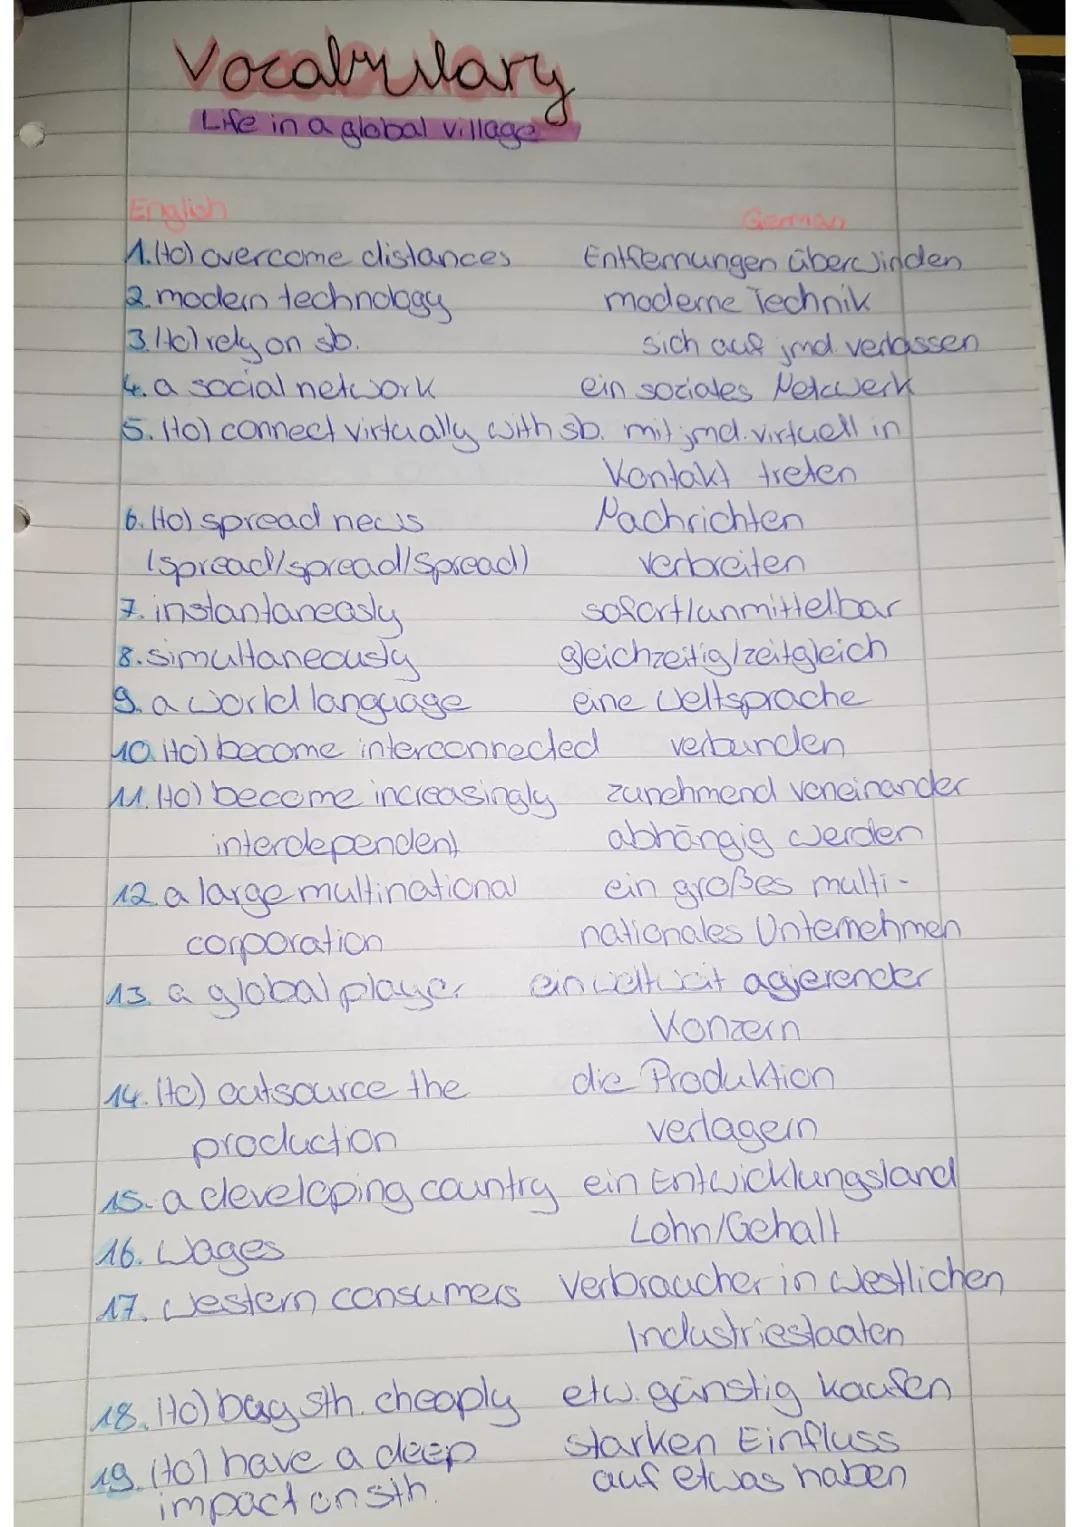 Vocabulary
Life in a global village
English German
1. (to) overcome distances Entfernungen überwinden
2. modern technology moderne Technik
3. (to) rely on sb. sich auf jmd. verlassen
4. a social network ein soziales Netzwerk
5. (to) connect virtually with sb. mit jmd. virtuell in
Kontakt treten
6. (to) spread news Nachrichten
(spread/spread/spread) verbreiten
7. instantaneasly sofort/unmittelbar
8. simultaneously gleichzeitig/zeitgleich
9. a world language eine Weltsprache
10. (to) become interconnected verbunden
11. (to) become increasingly zunehmend voneinander
interdependent abhängig werden
12. a large multinational ein großes multi-
corporation nationales Unternehmen
13. a global player ein weltweit agierender
Konzern
14. (to) outsource the die Produktion
production verlagern
15. a developing country ein Entwicklungsland
16. Wages Lohn/Gehalt
17. western consumers Verbraucher in westlichen
Industriestaaten
18. (to) buy sth. cheaply etw. günstig kaufen
19. (to) have a deep starken Einfluss
impact on sth. auf etwas haben